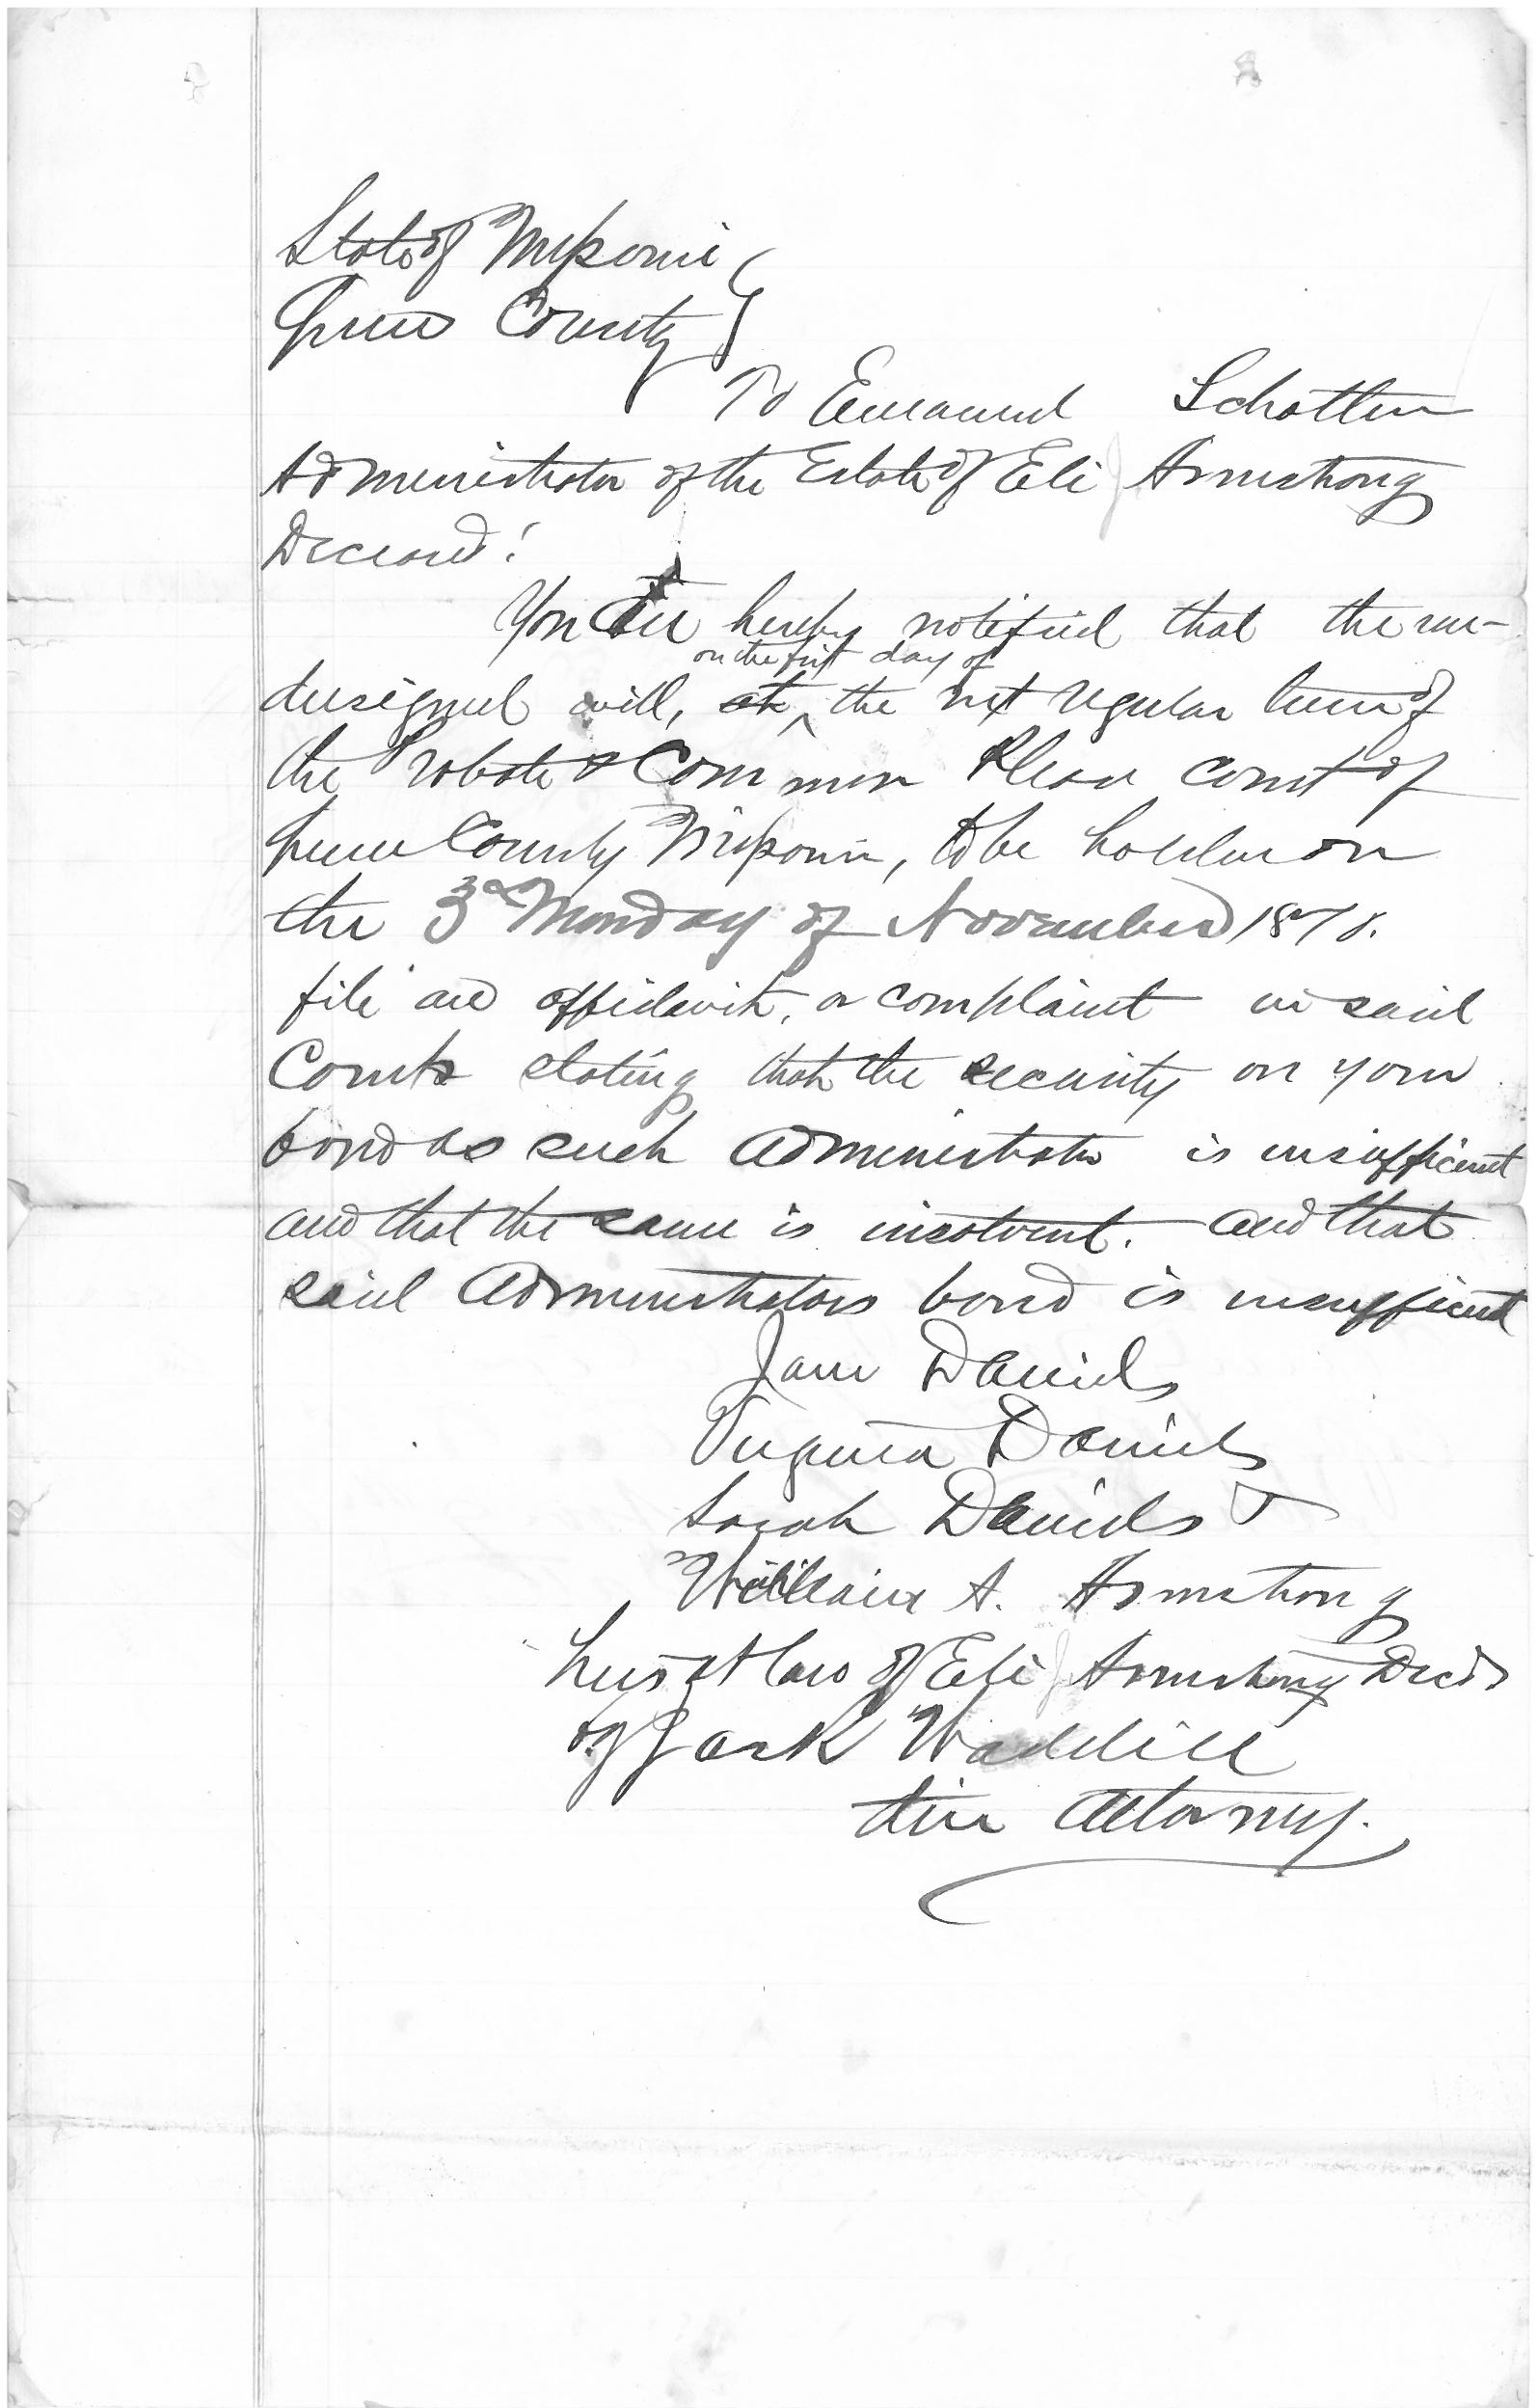 State of Missouri
Greene County
To Emanuel Schotten
Administrator of the Estate of Eli J Armstrong
Deceased:
You are hereby notified that the un-
on the first day of
dersigned will, at the next regular term of
the Probate & Common Pleas Court of
Greene County Missouri, to be holden on
the 3d Monday of November 1878.
file an affidavit, or complaint in said
Court stating that the security on your
bond as such Administrator is insufficient
and that the same is insolvent. and that
said Administrators bond is insufficient
Jane Daniels
Virginia Daniels
Sarah Daniels &
William A. Armstrong
heirs at law of Eli J Armstrong Decd
By Jack Waddill
their Attorney.